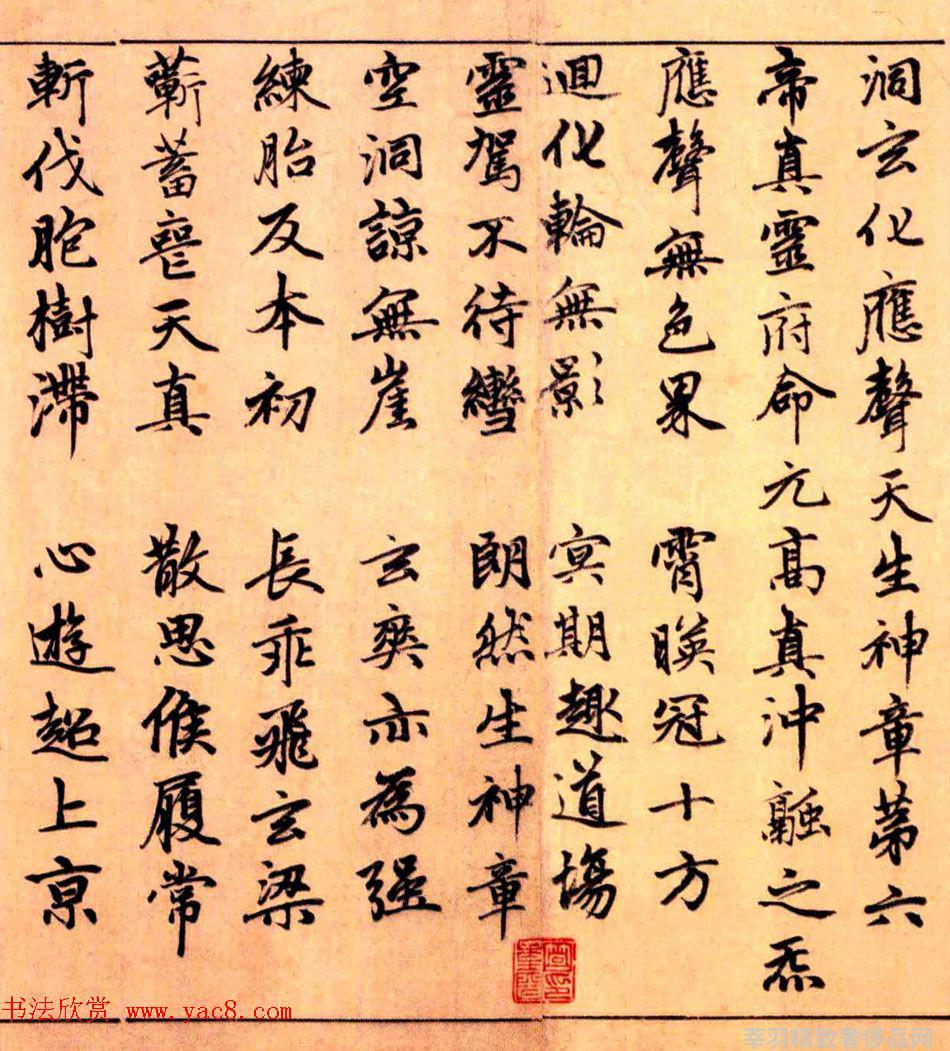 洞玄化應聲天生神章苐六
帝真靈府命元高真沖融之炁
應聲無色界 霄暎冠十方
迴化輪無影 冥期趣道場
靈駕不待轡 朗然生神章
空洞諒無崖 玄爽亦為强
練胎反本初 長乖飛玄梁
蘄蓄喪天真 散思候履常
斬伐胞樹滯 心遊超上京
书法欣赏 www.yac8.com
莘羽精致奢侈品网